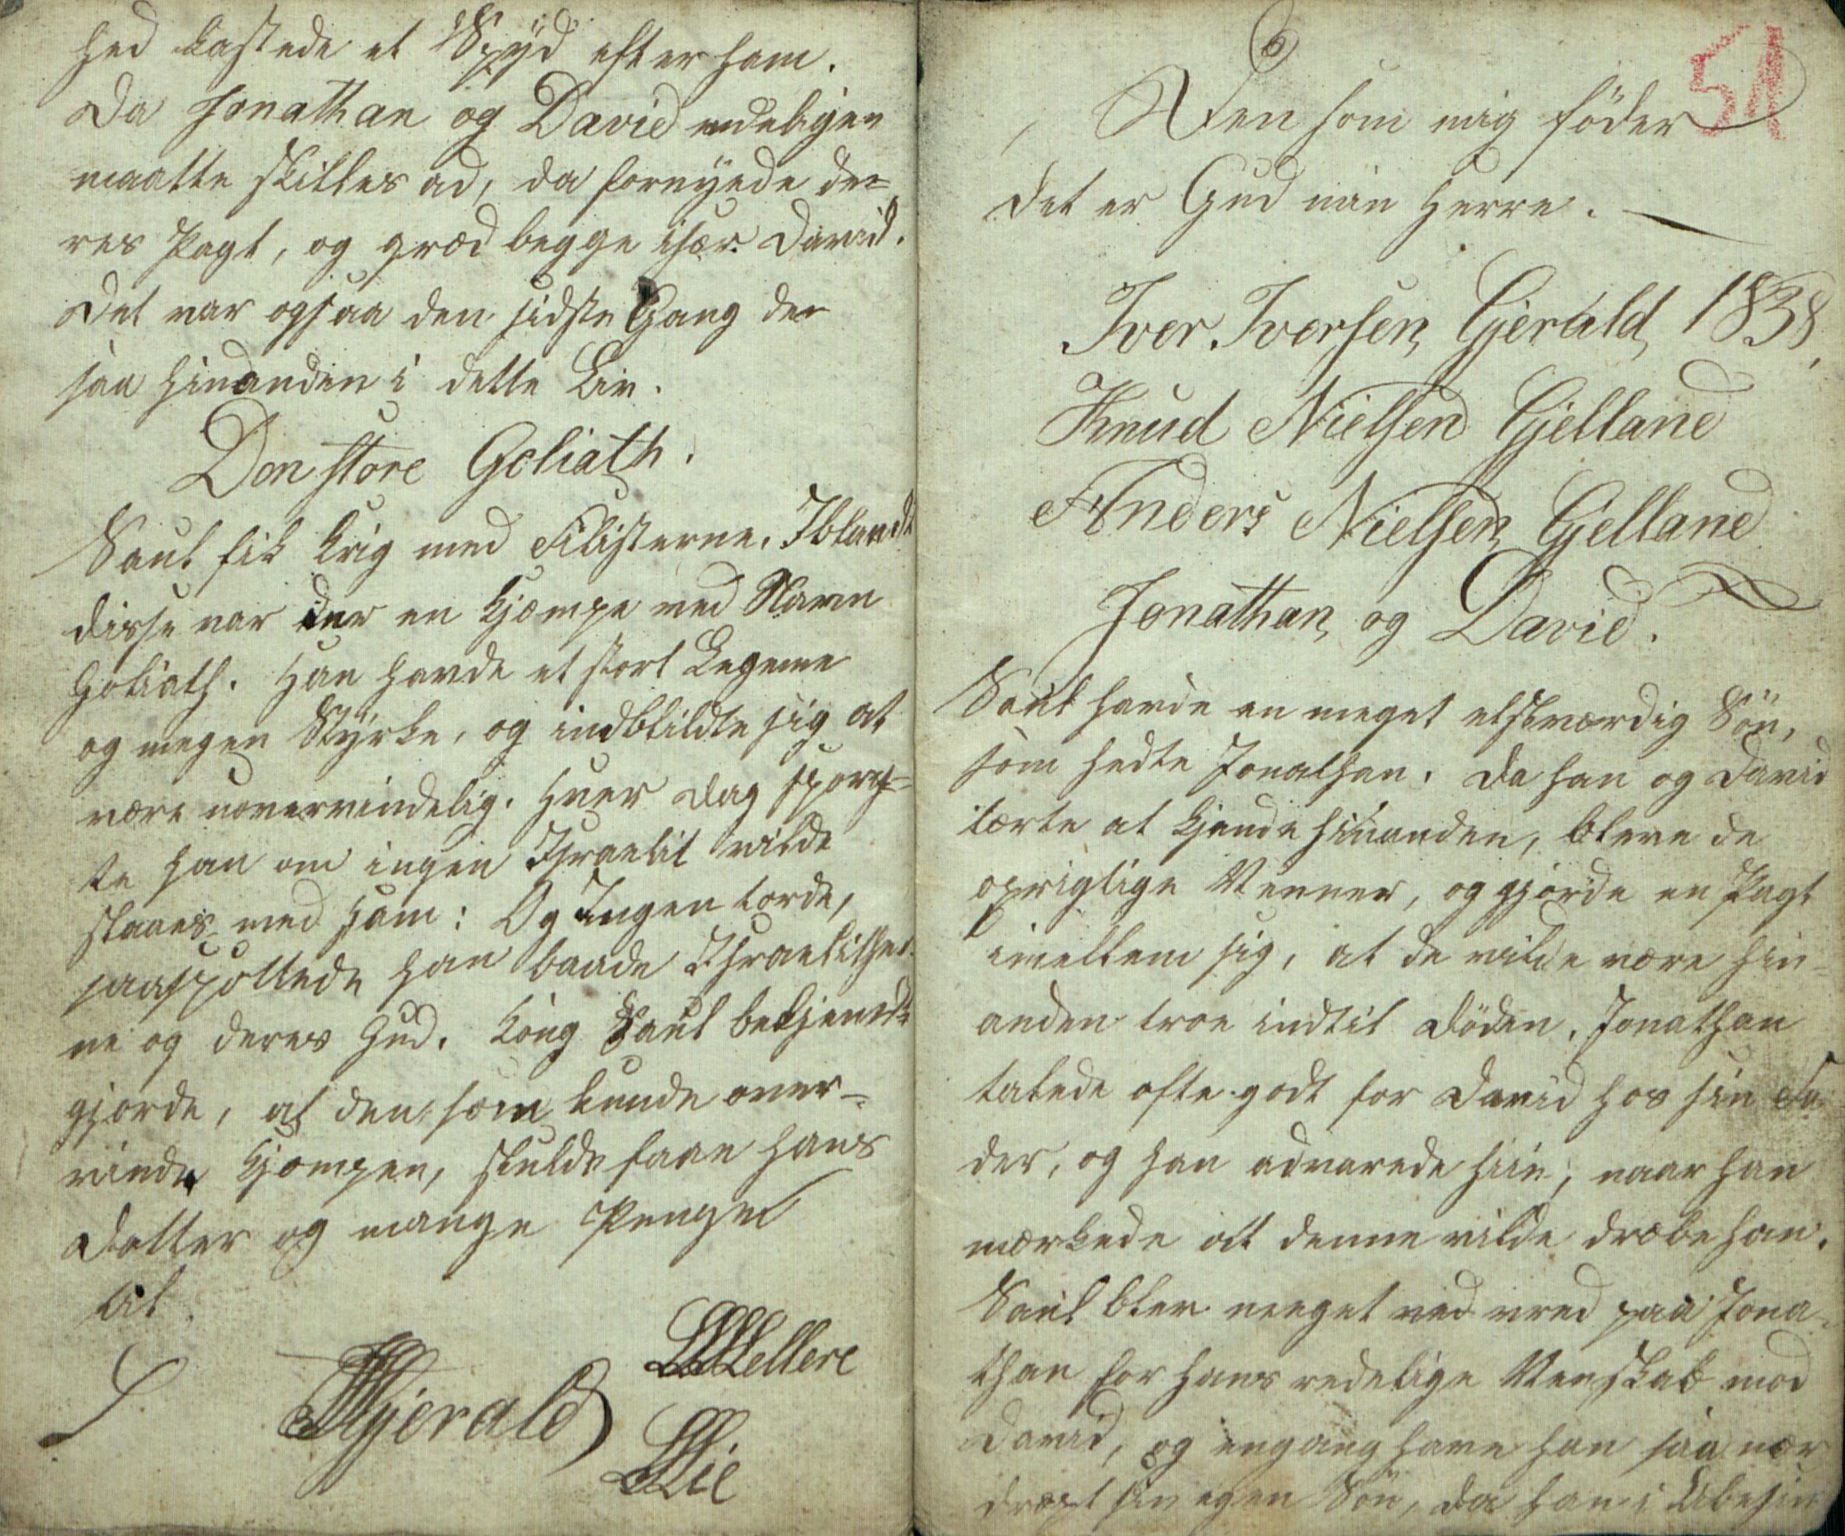 hed kastede et Spyd efter ham.
Da Jonathan og David endeligen
maatte skilles ad, da fornyede de=
res Pagt, og græd begge især David.
Det var ogsaa den sidste Gang de
saa hinanden i dette Liv.
Den store Goliath.
Saul fik Krig med Filisterne. Iblandt
disse var der en Kjæmpe ved Navn
Goliath. Han havde et stort Legeme
og megen Styrke, og indbildte sig at
være uovervindelig. Hver Dag spørg=
te han om ingen Israelit vilde
slaaes med ham: Og Ingen torde,
saa spottede han baade Israelither=
ne og deres Gud. Kong Saul bekjendt
gjorde, at den som kunde over=
vinde Kjæmpen, skulde faae hans
Datter og mange Penge
til.
Gjerald
Mellere
Lie
6
51
Den som mig föder
det er Gud min Herre.
Iver Iversen Gjerald 1838,
Knud Nielsen Gjelland
Anders Nielsen Gjelland
Jonathan og David.
Saul havde en meget elskværdig Sön,
som hedte Jonathan. Da han og David
lærte at kjende hinanden, bleve de
oprigtige Venner, og gjorde en Pagt
imellem sig, at de vilde være hin=
anden troe indtil Döden. Jonathan
talede ofte godt for David hos sin Fa
der, og han advarede hiin, naar han
mærkede at denne vilde dræbe han.
Saul blev meeget ved vred paa Jona=
than for hans redelige Venskab mod
David, og engang have han saa nær
dræpt sin egen Sön, da han i Ilbesin